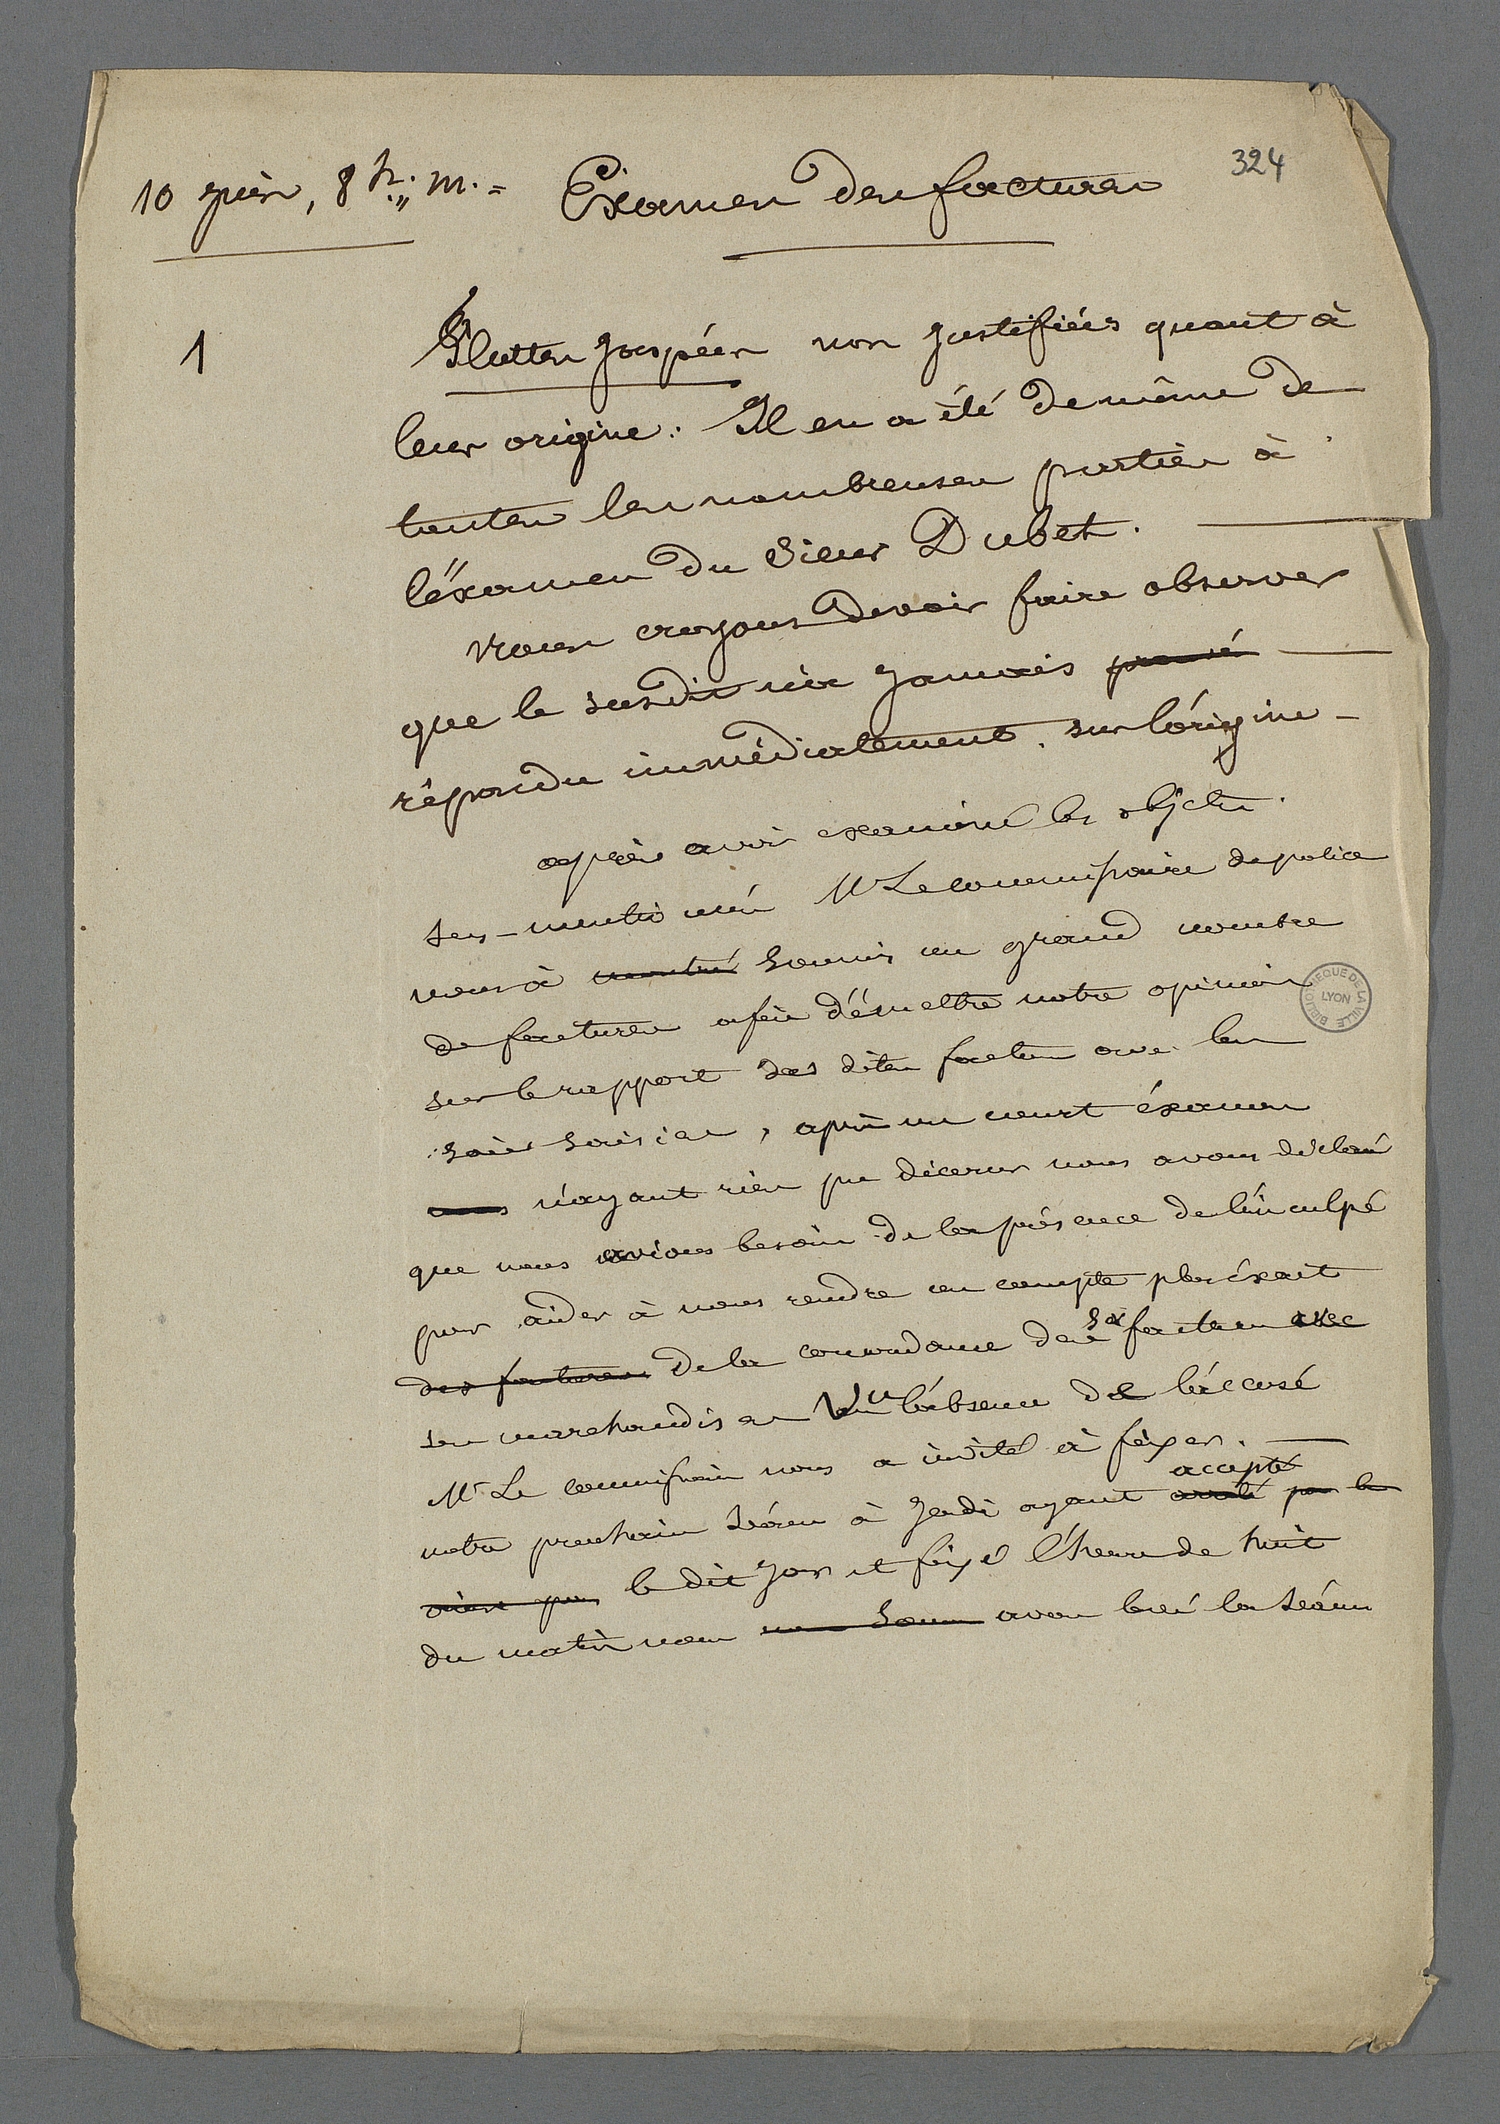 324
10 juin, 8 h. m. = Examen des factures
1
Flottes jaspées non justifiées quant à
leur origine. Il en a été de même de
toutes les nombreuses parties à
l'éxamen du Sieur Dubet.
Nous croyons devoir faire observer
que le susdit n'a jamais
répondu immédiatement sur l'origine
après avoir examiné les objets
sus-mentionnés Mr Le commissaire de police
nous à montré soumis un grand nombre
de factures afin d'émettre notre opinion
sur le rapport des dites factures avec les
soies saisies, après un court éxamen
nous n'ayant rien pu décerner nous avons déclaré
que nous avions besoin de la présence de l'inculpé
pour aider à nous rendre un compte plus éxact
des factures de la concordance de ses factures avec
ses marchandises Vu l'absence de l'accusé
Mr Le commissaire nous a invité à fixer
notre prochaine séance à Jeudi ayant accepté
le dit jour et fixé l'heure de huit
du matin nous avons levé la séance
BIBLIOTHEQUE DE LA VILLE LYON